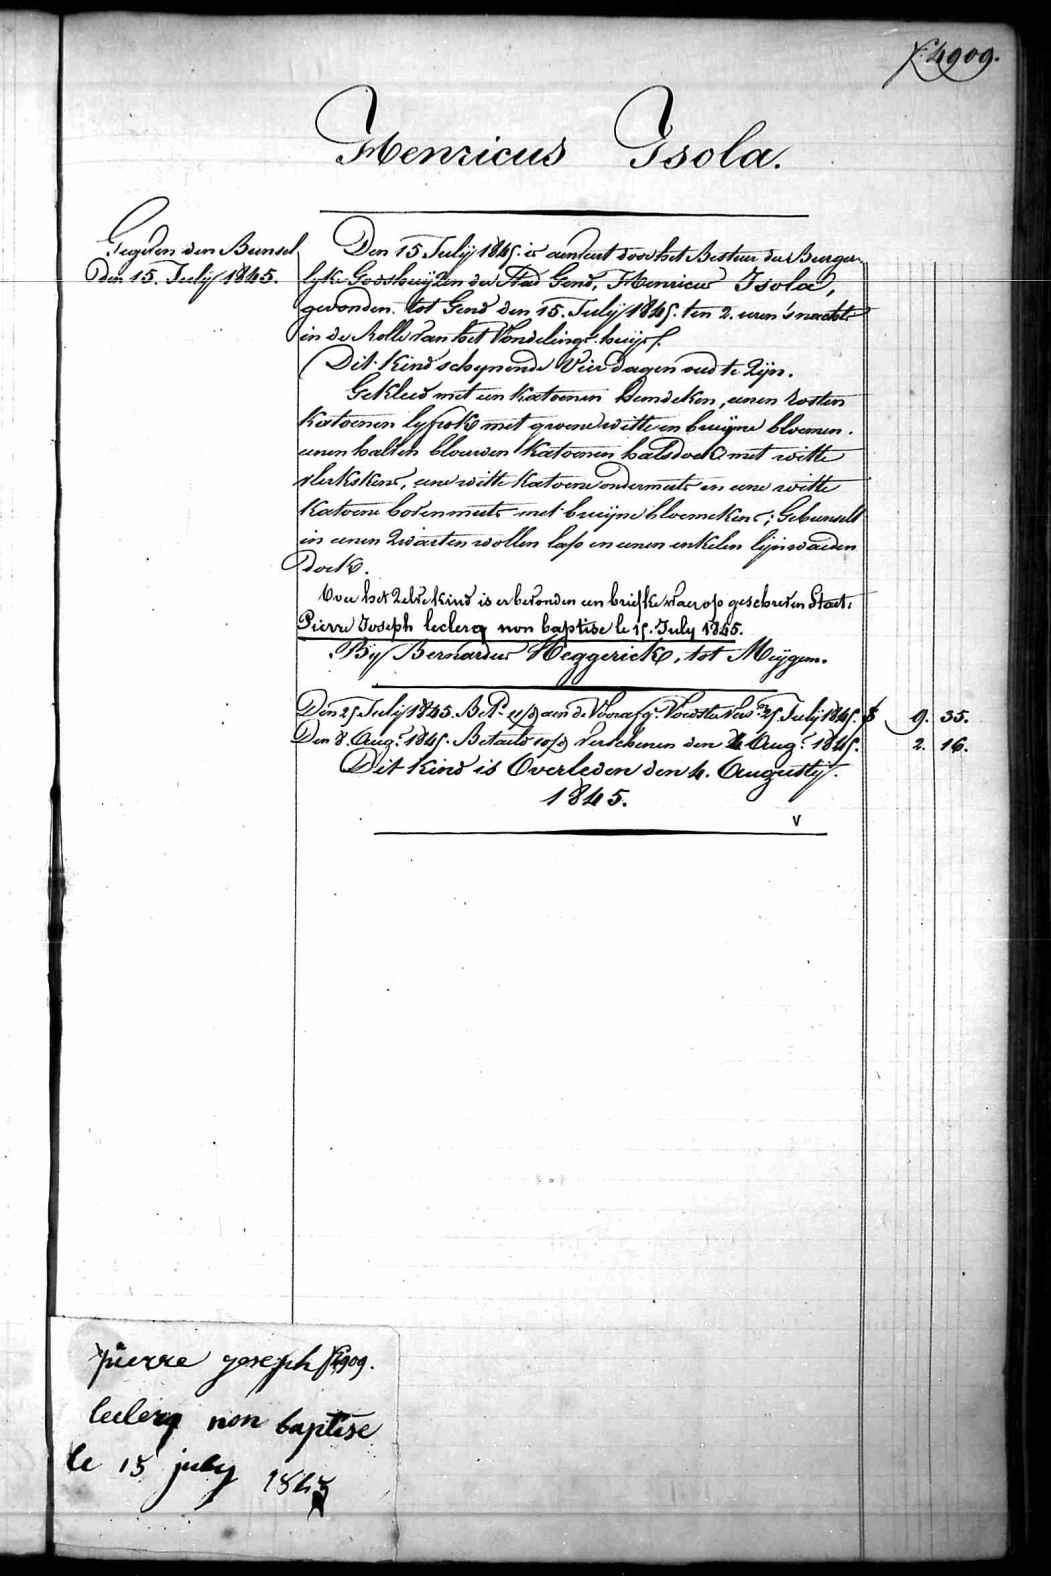 F. 4909.
Henricus Isola.
Gegeven den Bunsel
den 15. Julij 1845.
Den 15 Julij 1845. is aenveert door het Bestuer der Burger-
lyke Godshuijzen der Stad Gend, Henricus Isola,
gevonden tot Gend den 15. Julij 1845. ten 2. uren 's nachts
in de Rolle van het Vondelings-huijs.
Dit kind schynende Vier dagen oud te Zijn.
Gekleed met een katoenen hemdeken, eenen rosten
katoenen lyfrok met groene witte en bruijne bloemen.
eenen halven blouwen katoenen halsdoek met witte
vlekskens, eene witte katoene ondermuts en eene witte
katoene bovenmuts met bruijne bloemekens; Gebunselt
in eenen Zwarten wollen lap en eenen enkelen lijnwaeden
doek.
Voor het Zelve kind is er bevonden een briefke waer op geschreven Staet:
Pierre Joseph leclerq non baptise le 15. July 1845.
Bij Bernardus Heggerick, tot Meygem.
Den 25 Julij 1845. Bet. aen de Voorafg. Voedster vers. 25 Julij 1845. 9. 35.
Den 8. Aug. 1845. Betaeld verschenen den 4 Aug. 1845. 2. 16.
Dit kind is Overleden den 4. Augusty
1845.
V
pierre joseph F. 4909.
leclerq non baptise
le 15 july 1845